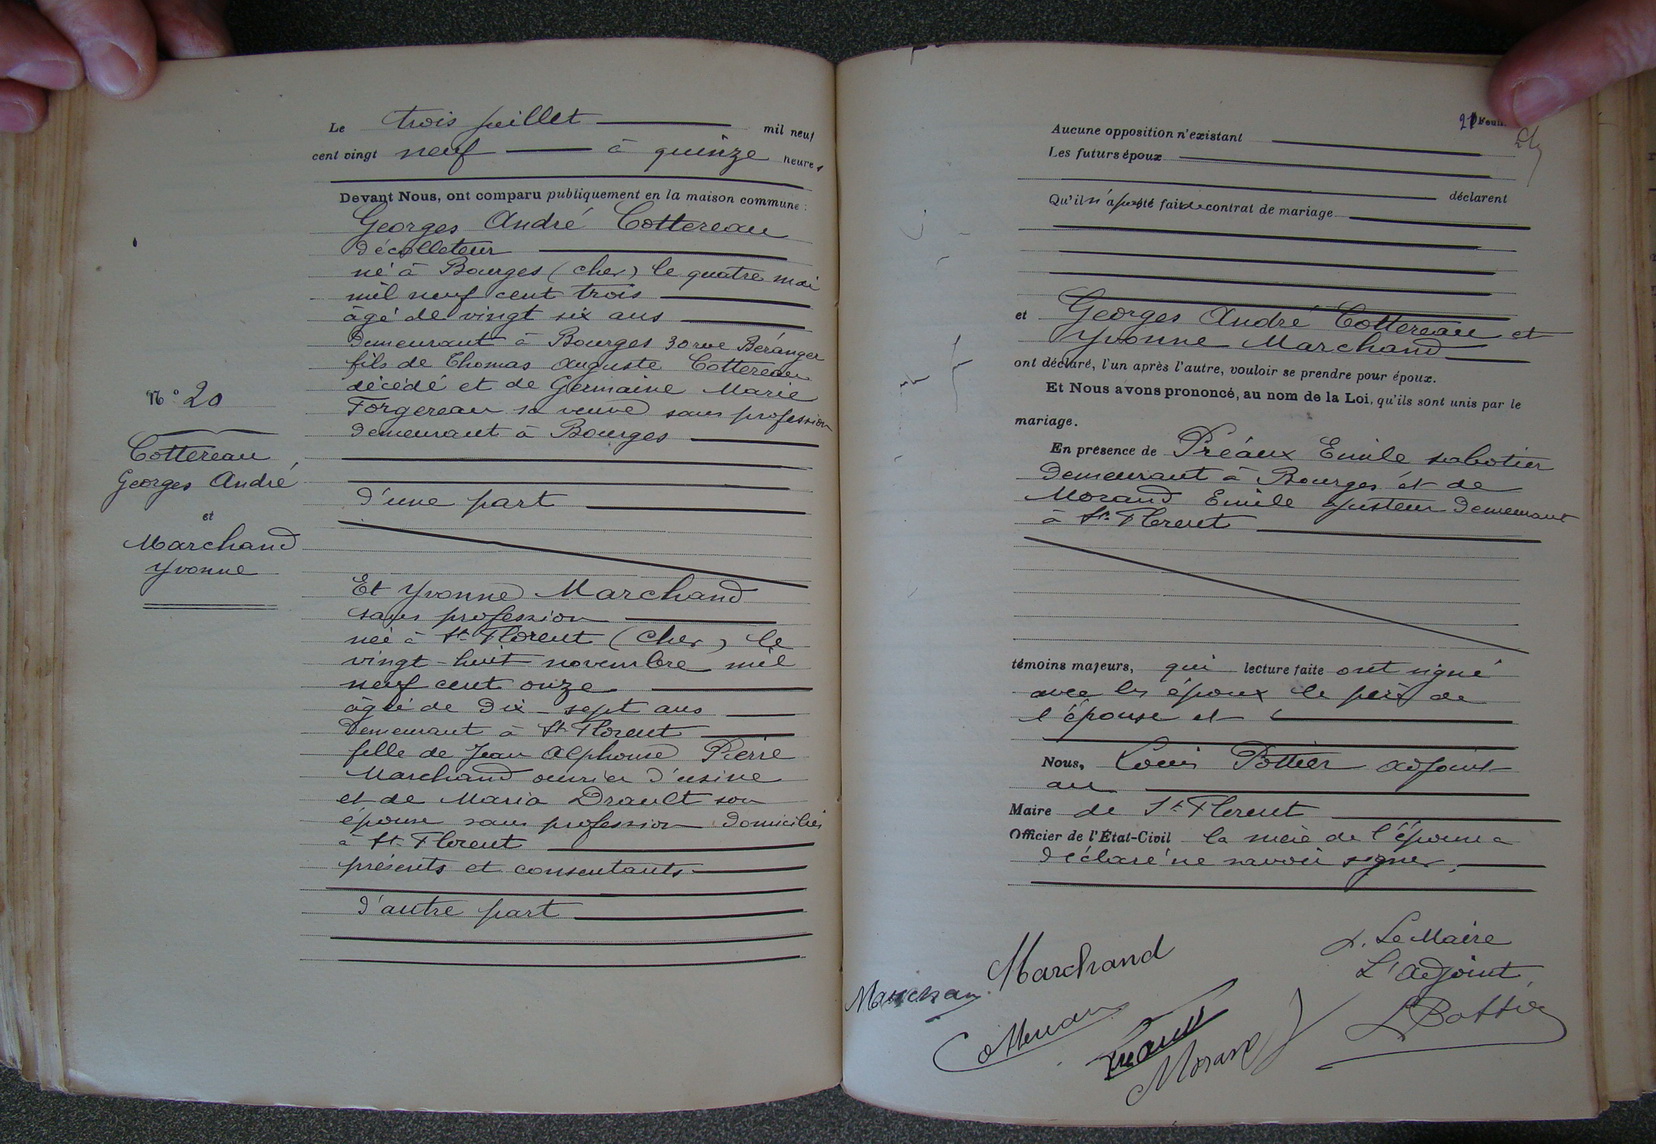 N° 20
Cottereau
Georges André
et
Marchand
Yvonne
Le trois juillet mil neuf
cent vingt neuf à quinze heures
Devant Nous, ont comparu publiquement en la maison commune :
Georges André Cottereau
décolleteur
né à Bourges (cher) le quatre mai
mil neuf cent trois
âgé de vingt six ans
demeurant à Bourges 30 rue Béranger
fils de Thomas Auguste Cottereau
décédé et de Germaine Marie
Forgereau sa veuve sans profession
demeurant à Bourges
d'une part
Et Yvonne Marchand
sans profession
née à St Florent (Cher) le
vingt-huit novembre mil
neuf cent onze
agée de dix-sept ans
demeurant à St Florent
fille de Jean Alphonse Pierre
Marchand ouvrier d'usine
et de Maria Drault son
épouse sans profession domiciliés
à St Florent
présents et consentants
d'autre part
21 Feuil
Aucune opposition n'existant
Les futurs époux
déclarent
Qu'il n'a pas été fait de contrat de mariage
et Georges André Cottereau et
Yvonne Marchand
ont déclaré, l'un après l'autre, vouloir se prendre pour époux.
Et Nous avons prononcé, au nom de la Loi, qu'ils sont unis par le
mariage.
En présence de Préaux Emile sabotier
demeurant à Bourges et de
Morand Emile ajusteur demeurant
à St Florent
témoins majeurs, qui lecture faite ont signé
avec les époux le père de
l'épouse et
Nous, Louis Pottier adjoint
au
Maire de St Florent
Officier de l'État-Civil la mère de l'épouse a
déclaré ne savoir signer.
Marchand
Cottereau
Morand
P. Le Maire
L'adjoint